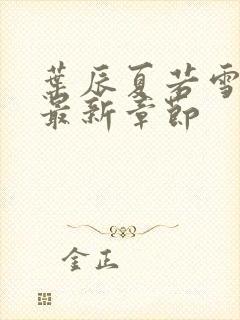 葉辰夏若雪
最新章節
金正